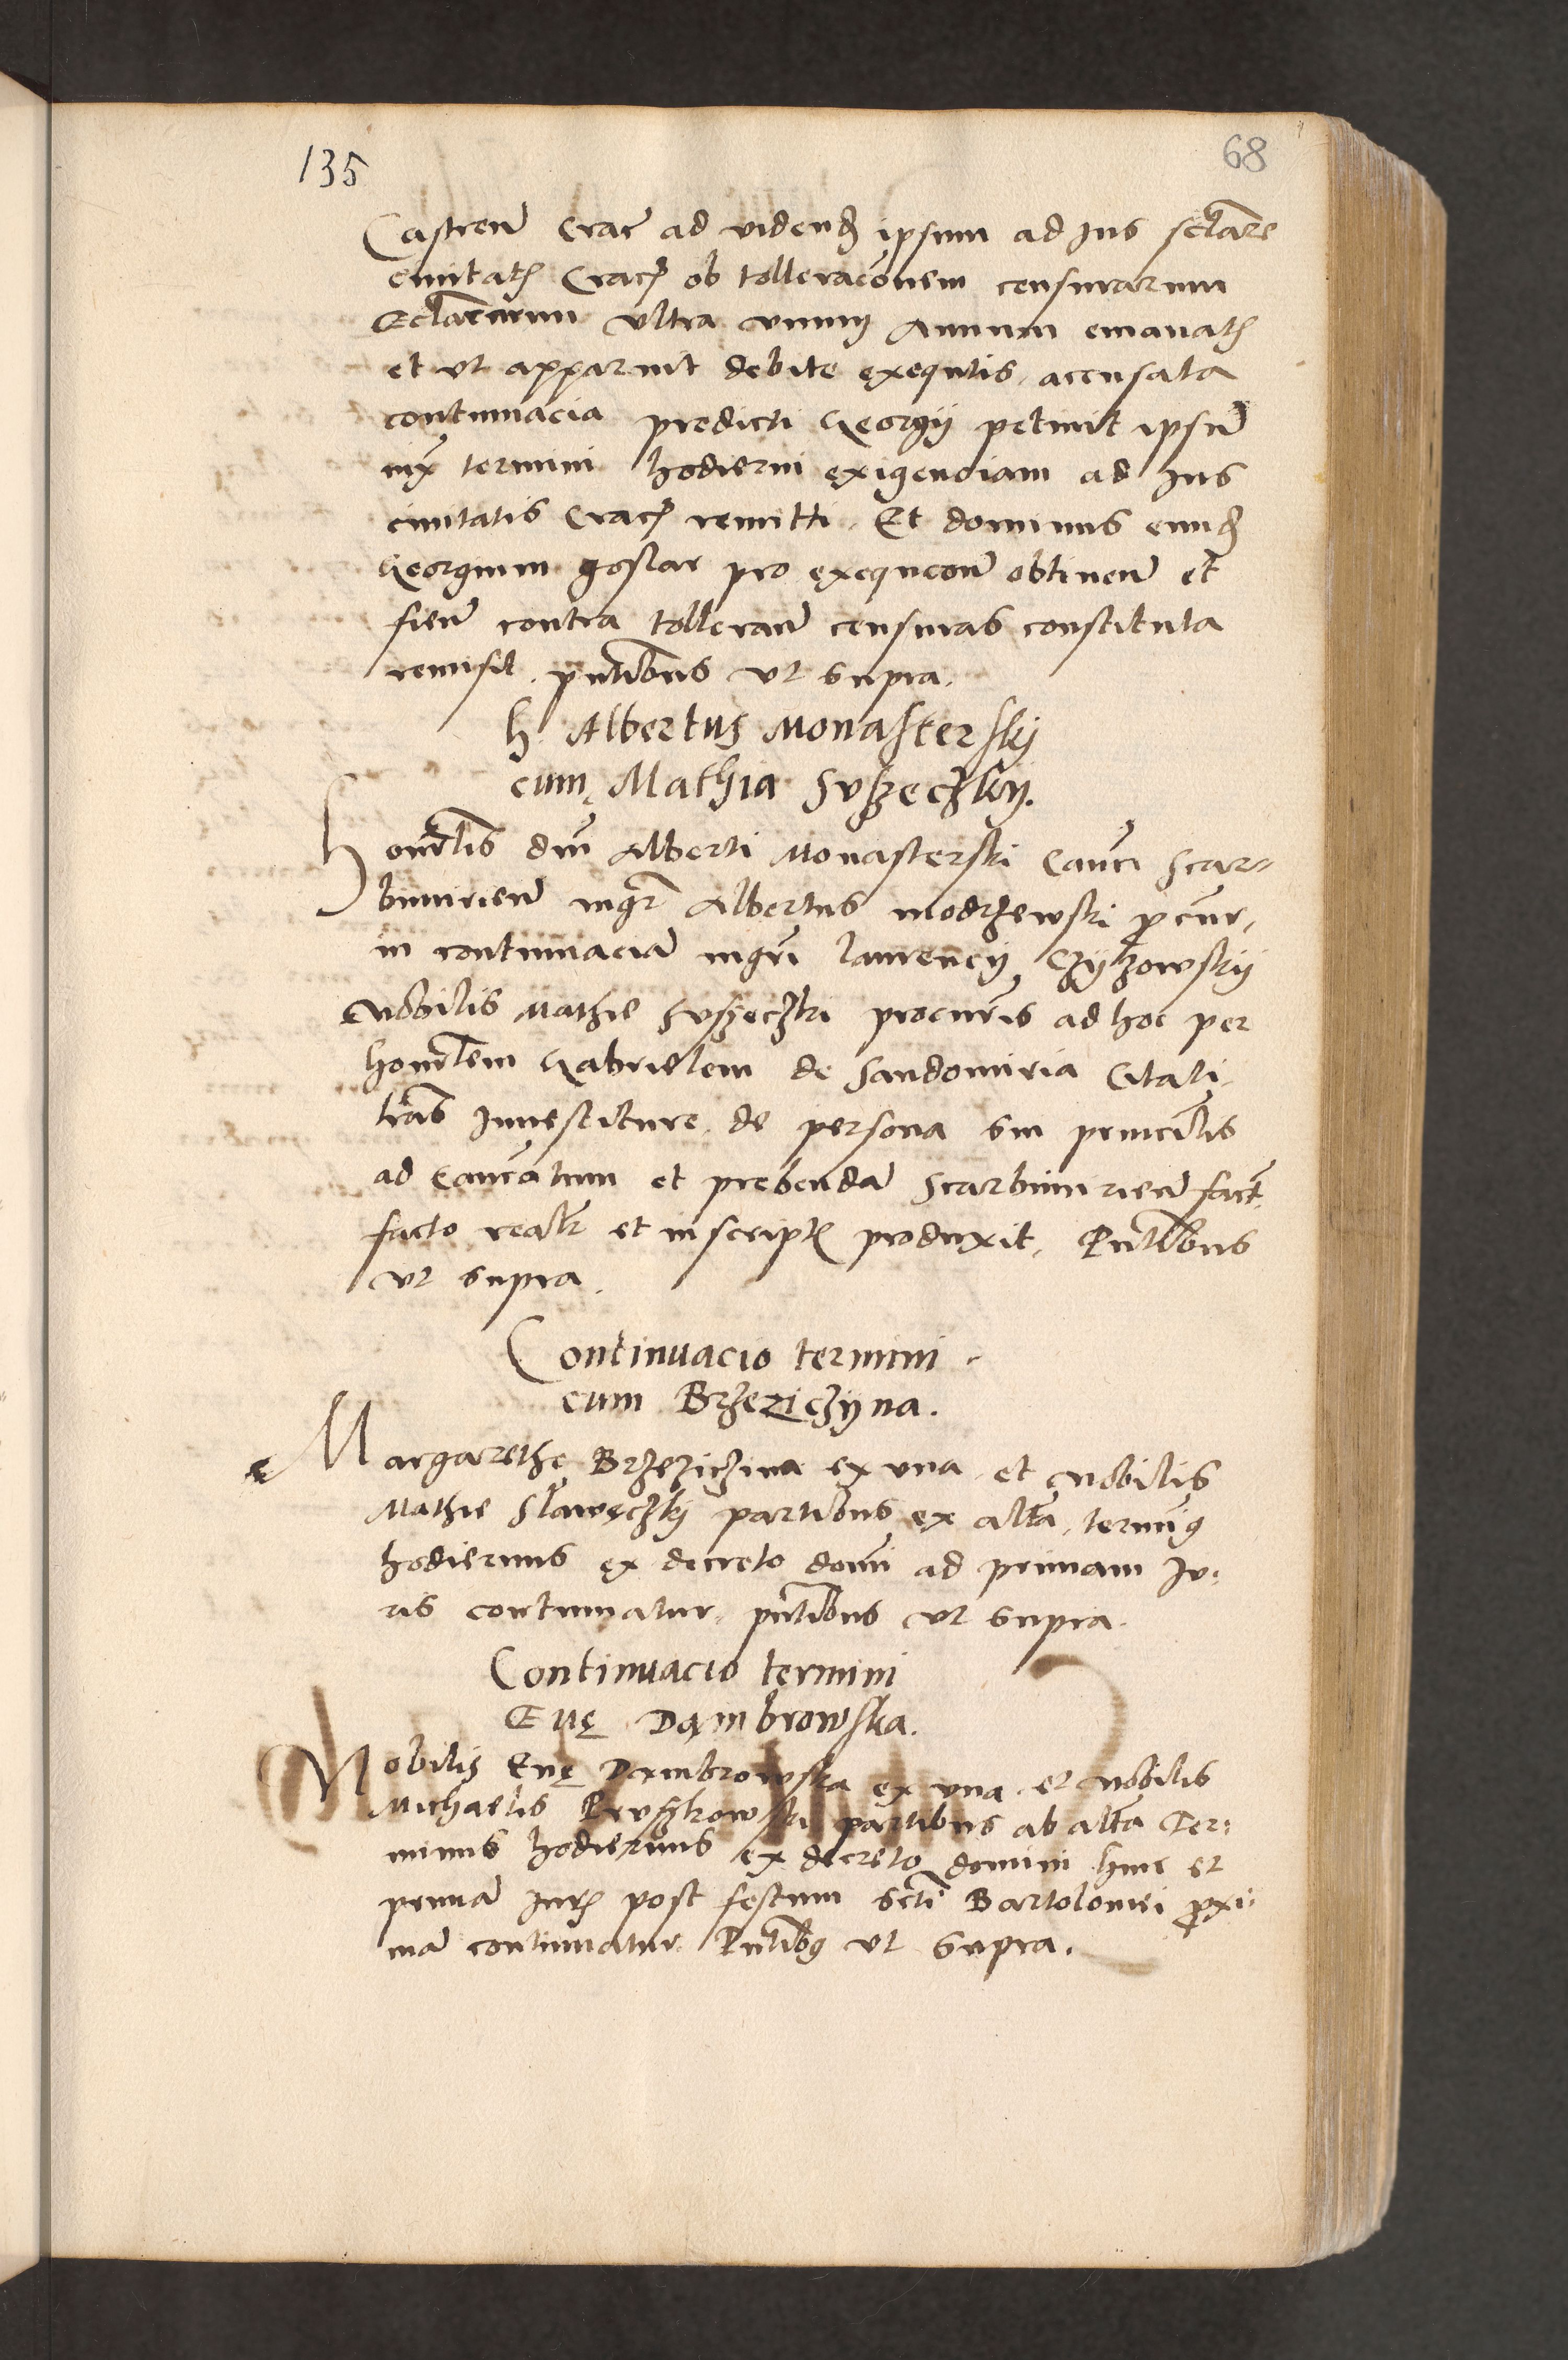 135
68
Castren Crac ad videnđ ipsum ad Ius sclare
civitatꝭ Cracꝭ ob tolleracōnem censurarum
Ecl̄arum ultra unum Annum emanatꝭ
et ut apparuit debite exequutis, accusata
contumacia predicti Georgij petivit ipsum
iux termini hodierni exigenciam ad Ius
civitatis Cracꝭ remitti. Et dominus eunđ
Georgium goslar pro exequcon obtinen et
fien contra tolleran censuras constituta
remisit. pn̄tibus ut supra.
h Albertus Monasterskij
cum Mathia Suszeczkij.
Honor̄lis dni Alberti Monasterski Can̄ci Scar=
bimirien mgr̄ Albertus modrzewski procur,
in contumaciā mgri laurencij Czyżowskij
Nobilis Mathie Suszeczki procur̄is ad hoc per
honor̄lem Gabrielem de Sandomiria Citati
lras Investiture de persona sui princīlis
ad Can̄catum et prebendā Scarbimirien fact
facto realr̄ et in scriptꝭ produxit. Pn̄tibus
ut supra.
Continuacio termini
cum Brzeziczyna.
Margarethe Brzeziczina ex una et Nobilis
Mathie Sławęczkij partibus ex altā, termīꝯ
hodiernus ex decreto domī ad primam Iu=
ris continuatur. pn̄tibus ut supra.
Continuacio termini
Evę Dąmbrowska.
Nobilis Evę Dąmbrowska ex una et Nobilis
Michaelis Pruszkowski partibus ab altā Ter=
minus hodiernus ex decreto domini hinc et
primā Iurꝭ post festum Scti Bartolomei proxi=
mā continuatur. Pn̄tibꝯ ut supra.